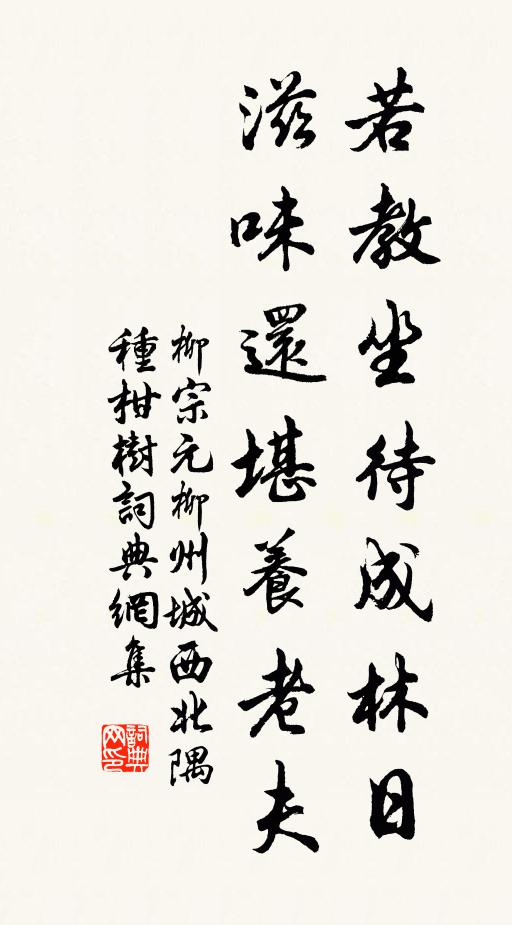 若教坐待成林日
滋味還堪養老夫
柳宗元柳州城西北隅
種柑樹詞典網集
詞典
网印